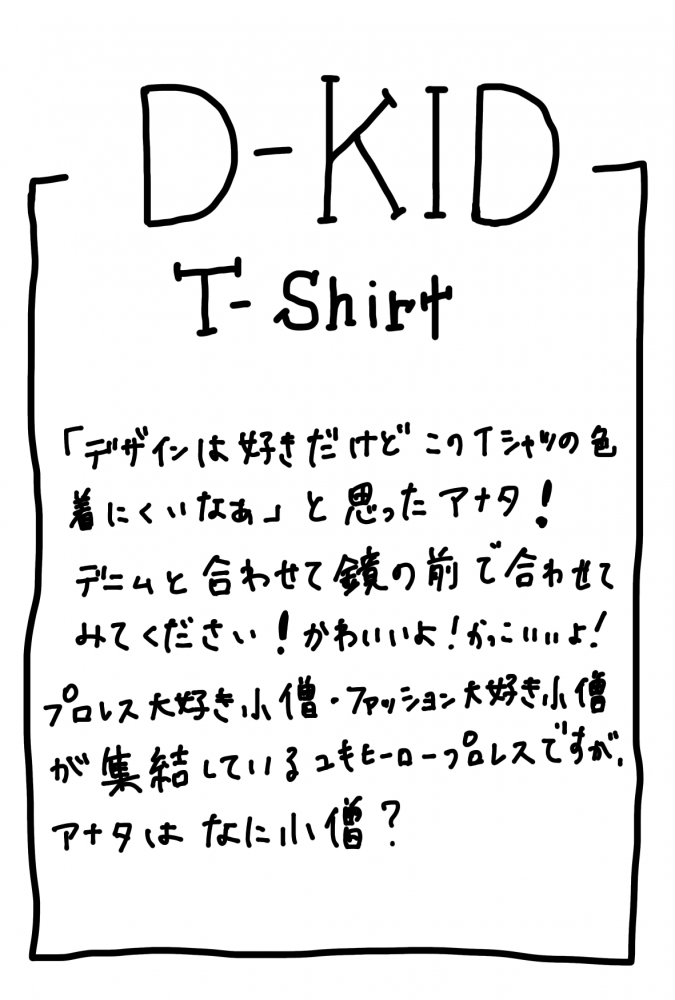 D-KID
T-Shirt
「デザインは好きだけど このTシャツの色
着にくいなぁ」と思ったアナタ!
デニムと合わせて鏡の前で合わせて
みてください!かわいいよ!かっこいいよ!
プロレス大好き小僧・ファッション大好き小僧
が集結しているユキヒーロープロレスですが、
アナタは なに小僧?